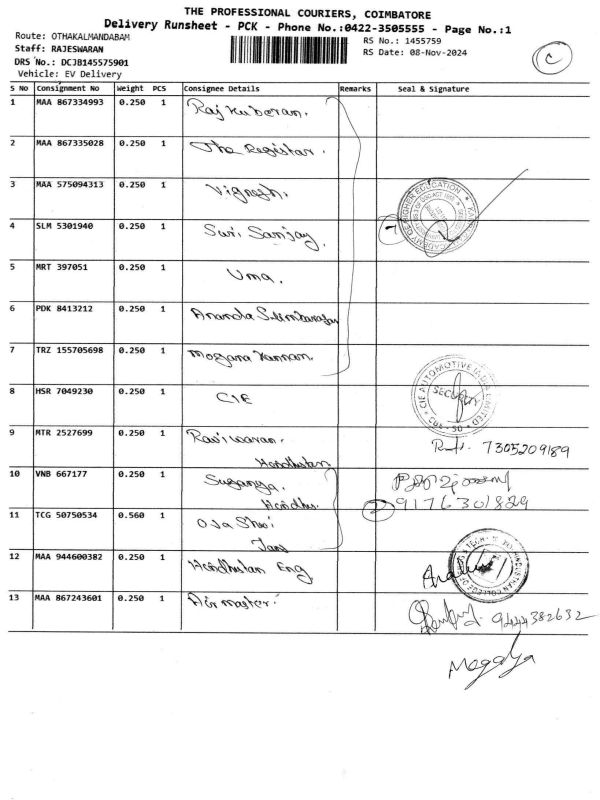 THE PROFESSIONAL COURIERS, COIMBATORE
Delivery Runsheet - PCK - Phone No.:0422-3505555 - Page No.:1
Route: OTHAKALMANDABAM
RS No.: 1455759
Staff: RAJESWARAN
RS Date: 08-Nov-2024
DRS No.: DCJB145575901
Vehicle: EV Delivery
C
S No Consignment No Weight PCS Consignee Details Remarks Seal & Signature
1 MAA 867334993 0.250 1 Raj Kuberan.
2 MAA 867335028 0.250 1 The Registar.
3 MAA 575094313 0.250 1 Vignesh.
4 SLM 5301940 0.250 1 Suri Sanjay. 7
5 MRT 397051 0.250 1 Uma.
6 PDK 8413212 0.250 1 Ananda
7 TRZ 155705698 0.250 1 Mogana Kannan.
8 HSR 7049230 0.250 1 CIE
CIE AUTOMOTIVE INDIA LIMITED
9 MTR 2527699 0.250 1 7305209189
Hindhustan
10 VNB 667177 0.250 1 Suganya.
Hindhu.
2 9176301829
11 TCG 50750534 0.560 1
12 MAA 944600382 0.250 1 Hindhustan Eng
13 MAA 867243601 0.250 1 Air master.
9444382632